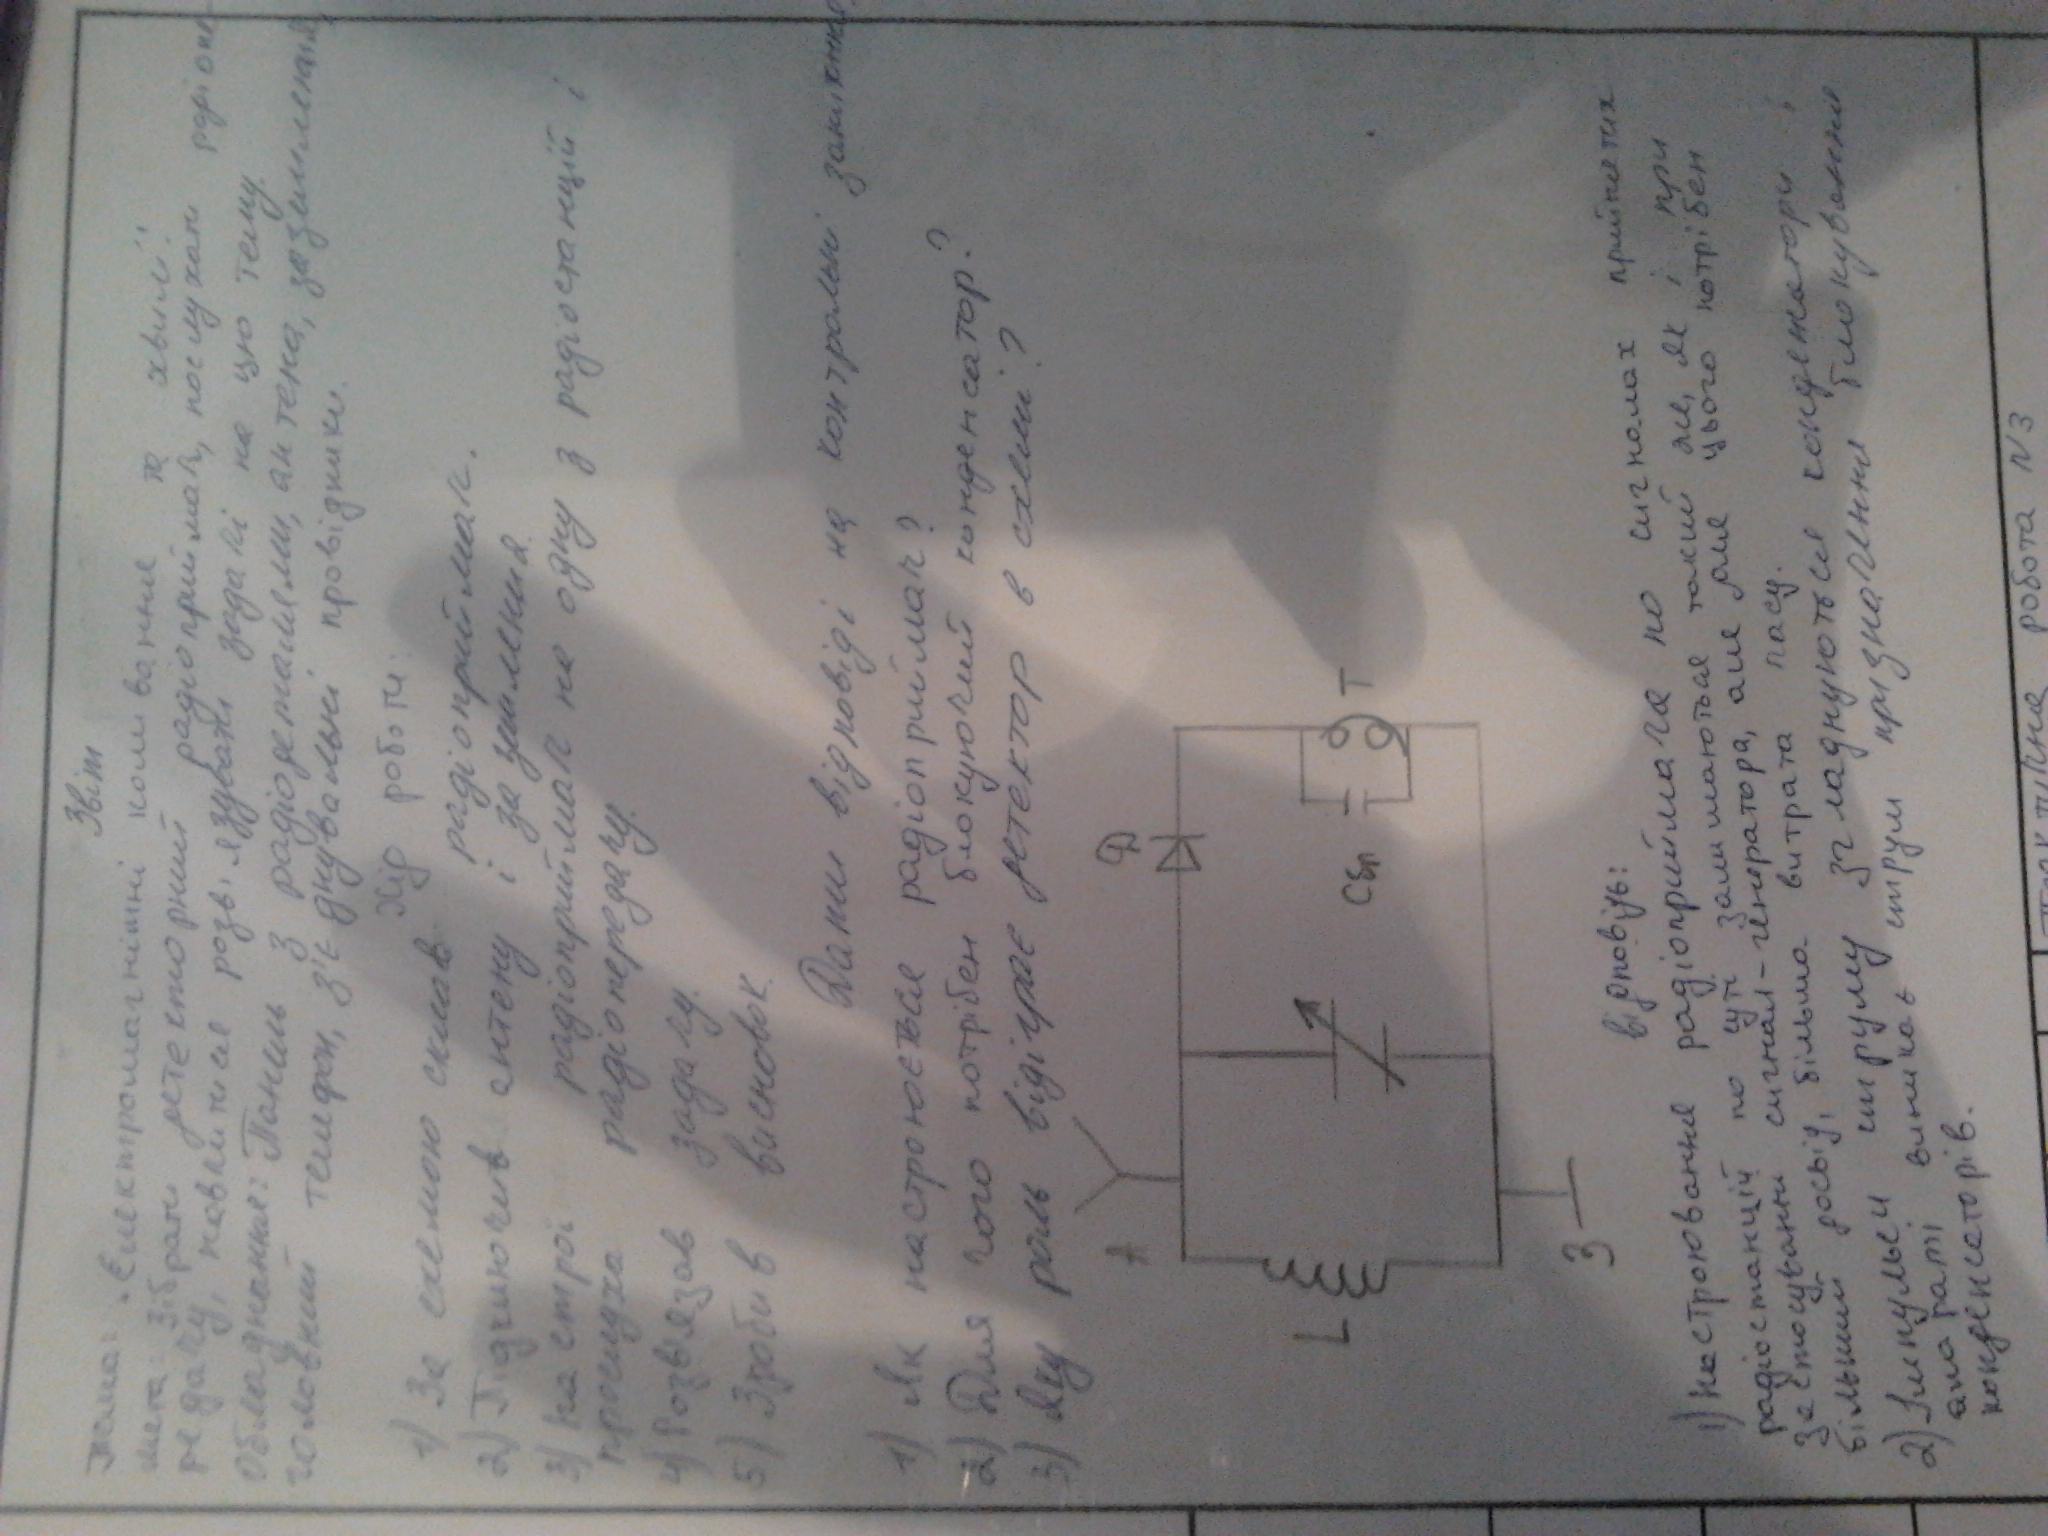 Звіт
Тема: "Електромагнітні коливання та хвилі".
мета: зібрати детекторний радіоприймач, послухати радіопе-
редачу, навчитися розв'язувати задачі на цю тему.
Обладнання: Панель з радіодеталями, антена, заземлення,
головний телефон, з'єднувальні провідники.
Хід роботи:
1) За схемою склав радіоприймач.
2) Підключив антену і заземлення.
3) настрої радіоприймач на одну з радіостанцій і
прослуха радіопередачу.
4) Розв'язав задачу.
5) Зробив висновок.
Дати відповіді на контрольні запитання
1) Як настроюється радіоприймач?
2) Для чого потрібен блокуючий конденсатор?
3) Яку роль відіграє детектор в схемі?
А
Д
L
Cбл
Т
З
відповідь:
1) настроювання радіоприймача по сигналах прийнятих
радіостанцій по суті залишається такий же, як і при
застосуванні сигнал-генератора, але для цього потрібен
більший досвід, більша витрата часу.
2) Імпульси струму згладжуються конденсатори і
апараті виникає струм призначенні блокування
конденсаторів.
Практична робота №3